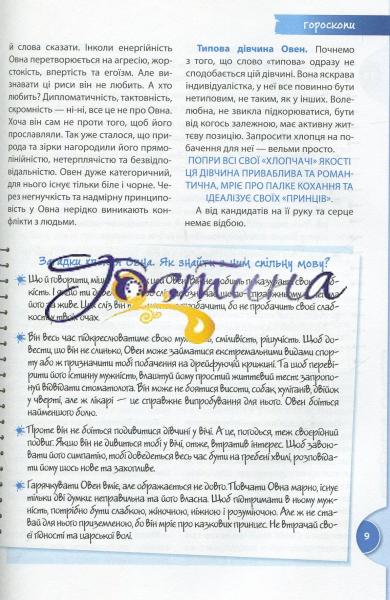 гороскопи
й слова сказати. Інколи енергійність
Овна перетворюється на агресію, жор-
стокість, впертість та егоїзм. Але ви-
знавати ці риси він не любить. А хто
любить? Дипломатичність, тактовність,
скромність — ні-ні, все це не про Овна.
Хоча він сам не проти того, щоб його
прославляли. Так уже сталося, що приро-
да та зірки нагородили його прямо-
лінійністю, нетерплячістю та безвідпо-
відальністю. Овен дуже категоричний,
для нього існує тільки біле і чорне. Через
негнучкість та надмірну принципо-
вість у Овна нерідко виникають кон-
флікти з людьми.
Типова дівчина Овен. Почнемо
з того, що слово «типова» одразу не
сподобається цій дівчині. Вона яскрава
індивідуалістка, у неї все повинно бути
нетиповим, не таким, як у інших. Воле-
любна, не звикла підкорюватися, бути
від когось залежною, має активну жит-
тєву позицію. Запросити хлопця на
побачення для неї — вельми просто.
ПОПРИ ВСІ СВОЇ «ХЛОПЧАЧІ» ЯКОСТІ
ЦЯ ДІВЧИНА ПРИВАБЛИВА ТА РОМАН-
ТИЧНА, МРІЄ ПРО ПАЛКЕ КОХАННЯ ТА
ІДЕАЛІЗУЄ СВОЇХ «ПРИНЦІВ».
А від кандидатів на її руку та серце
немає відбою.
Овна. Як знайти з ним спільну мову?
Він весь час підкреслюватиме свою сміливість, рішучість. Щоб до-
вести, що він не слинько, Овен може займатися екстремальними видами спор-
ту або ж призначити тобі побачення на дрейфуючій крижині. Та щоб переві-
рити його істинну мужність, влаштуй йому простий життєвий тест: запропо-
нуй відвідати стоматолога. Він може не боятися висоти, собак, хуліганів, двійок
у чверті, але ж лікарі — це справжнє випробування для нього. Овен боїться
найменшого болю.
Проте він не боїться подивитися дівчині у вічі. А це, погодься, теж своєрідний
подвиг. Якщо він не дивиться тобі у вічі, отже, втратив інтерес. Щоб завою-
вати його симпатію, тобі доведеться весь час бути на гребені хвилі, розповіда-
ти йому щось нове та захопливе.
Гарячкувати Овен вміє, але ображається не довго. Повчати Овна марно, існує
тільки дві думки: неправильна та його власна. Щоб підтримати в ньому муж-
ність, потрібно бути слабкою, жіночною, ніжною і розуміючою. Але ж не ста-
вай для нього приземленою, бо він мріє про казкових принцес. Не втрачай сво-
єї гідності та царської волі.
9